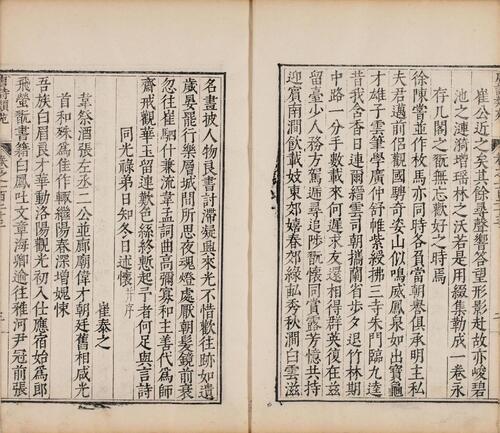 崔公近之矣其徐尋聲響答望形影赴故亦峻碧
池之漣漪增瑶林之沃若是用綴集勒成一卷永
存几閣之翫無忘歡好之時焉
徐陳嘗並作枚馬亦同時各負當朝譽俱承明主私
夫君邁前侶觀國騁奇姿山似鳴威鳳泉如出寶龜
才雄子雲筆學廣仲舒帷紫綬拂三寺朱門臨九逵
昔我含香日連爾縉雲司朝攜蘭省步夕退竹林期
中路一分手數載來何遲求友還相得群英復在兹
留臺少人務方駕遞尋追陟翫懷同賞露芳憶共持
迎賓南澗飲載妓東郊嬉春郊綠畝秀秋澗白雲滋
名畫披人物良書討滯疑興來光不惜歡往跡如遺
歲晏罷行樂層城間所思夜魂燈處厭朝髪鏡前衰
忽往崔駰什兼流韋孟詞曲高彌寡和主善代為師
齋戒觀華玉留連歎色絲終慙起予者何足與言詩
同光祿弟日知冬日述懷并序
崔泰之
韋祭酒張左丞二公並廊廟偉才朝廷舊相咸光
首和殊為佳作輙繼洛陽春深增媿悚
吾族白眉良才華動洛陽觀光初入仕應宿始為郎
飛螢翫書籍白鳳吐文章海卿逾往雅河尹冠前張